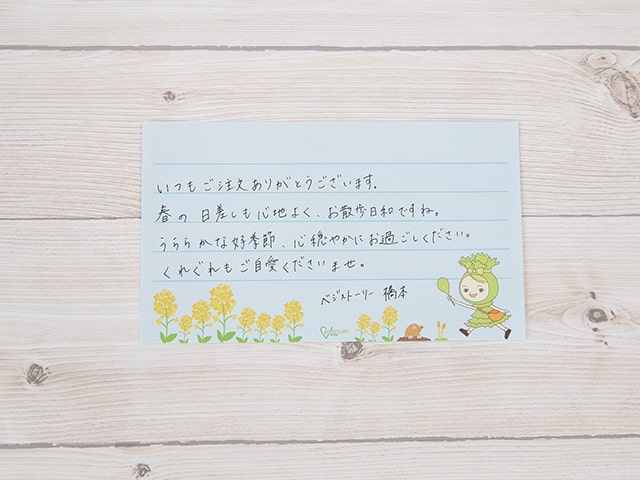 いつもご注文ありがとうございます。
春の日差しも心地よく、お散歩日和ですね。
うららかな好季節、心穏やかにお過ごしください。
くれぐれもご自愛くださいませ。
ベジストーリー 橋本